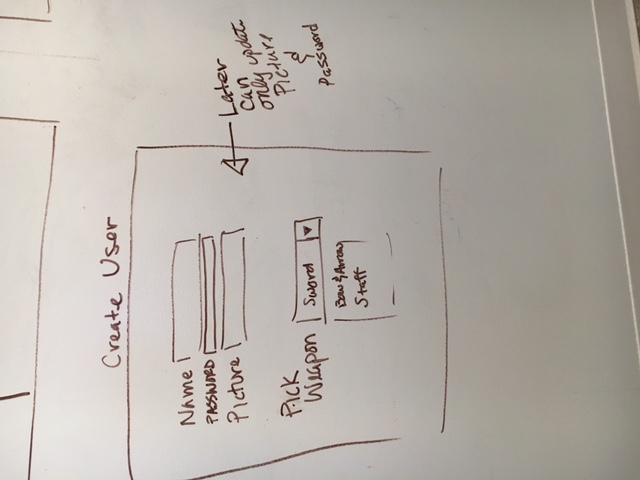 Create User
Name
PASSWORD
Picture
Pick
Weapon
Sword
Bow & Arrow
Staff
Later
can
only update
Picture
&
Password